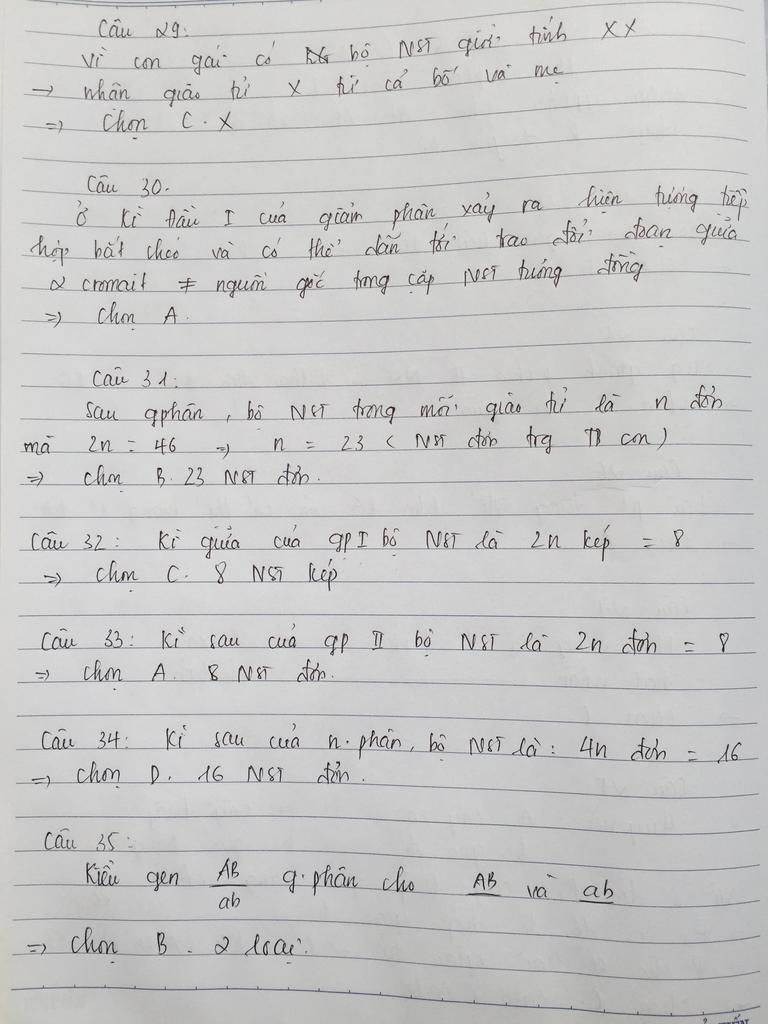 Câu 29:
Vì con gái có bộ NST giới tính XX
→ nhận giao tử X từ cả bố và mẹ
⇒ Chọn C. X
Câu 30.
Ở kì đầu I của giảm phân xảy ra hiện tượng tiếp
hợp bắt chéo và có thể dẫn tới trao đổi đoạn giữa
2 cromait ≠ nguồn gốc trong cặp NST tương đồng
⇒ Chọn A.
Câu 31:
Sau gphân, bộ NST trong mỗi giao tử là n đơn
mà 2n = 46 ⇒ n = 23 ( NST đơn trg TB con )
⇒ chọn B. 23 NST đơn.
Câu 32: Kì giữa của gp I bộ NST là 2n kép = 8
⇒ chọn C. 8 NST kép
Câu 33: Kì sau của gp II bộ NST là 2n đơn = 8
⇒ chọn A. 8 NST đơn.
Câu 34: Kì sau của n.phân, bộ NST là: 4n đơn = 16
⇒ chọn D. 16 NST đơn.
Câu 35:
Kiểu gen AB/ab g.phân cho AB và ab
⇒ chọn B. 2 loại.